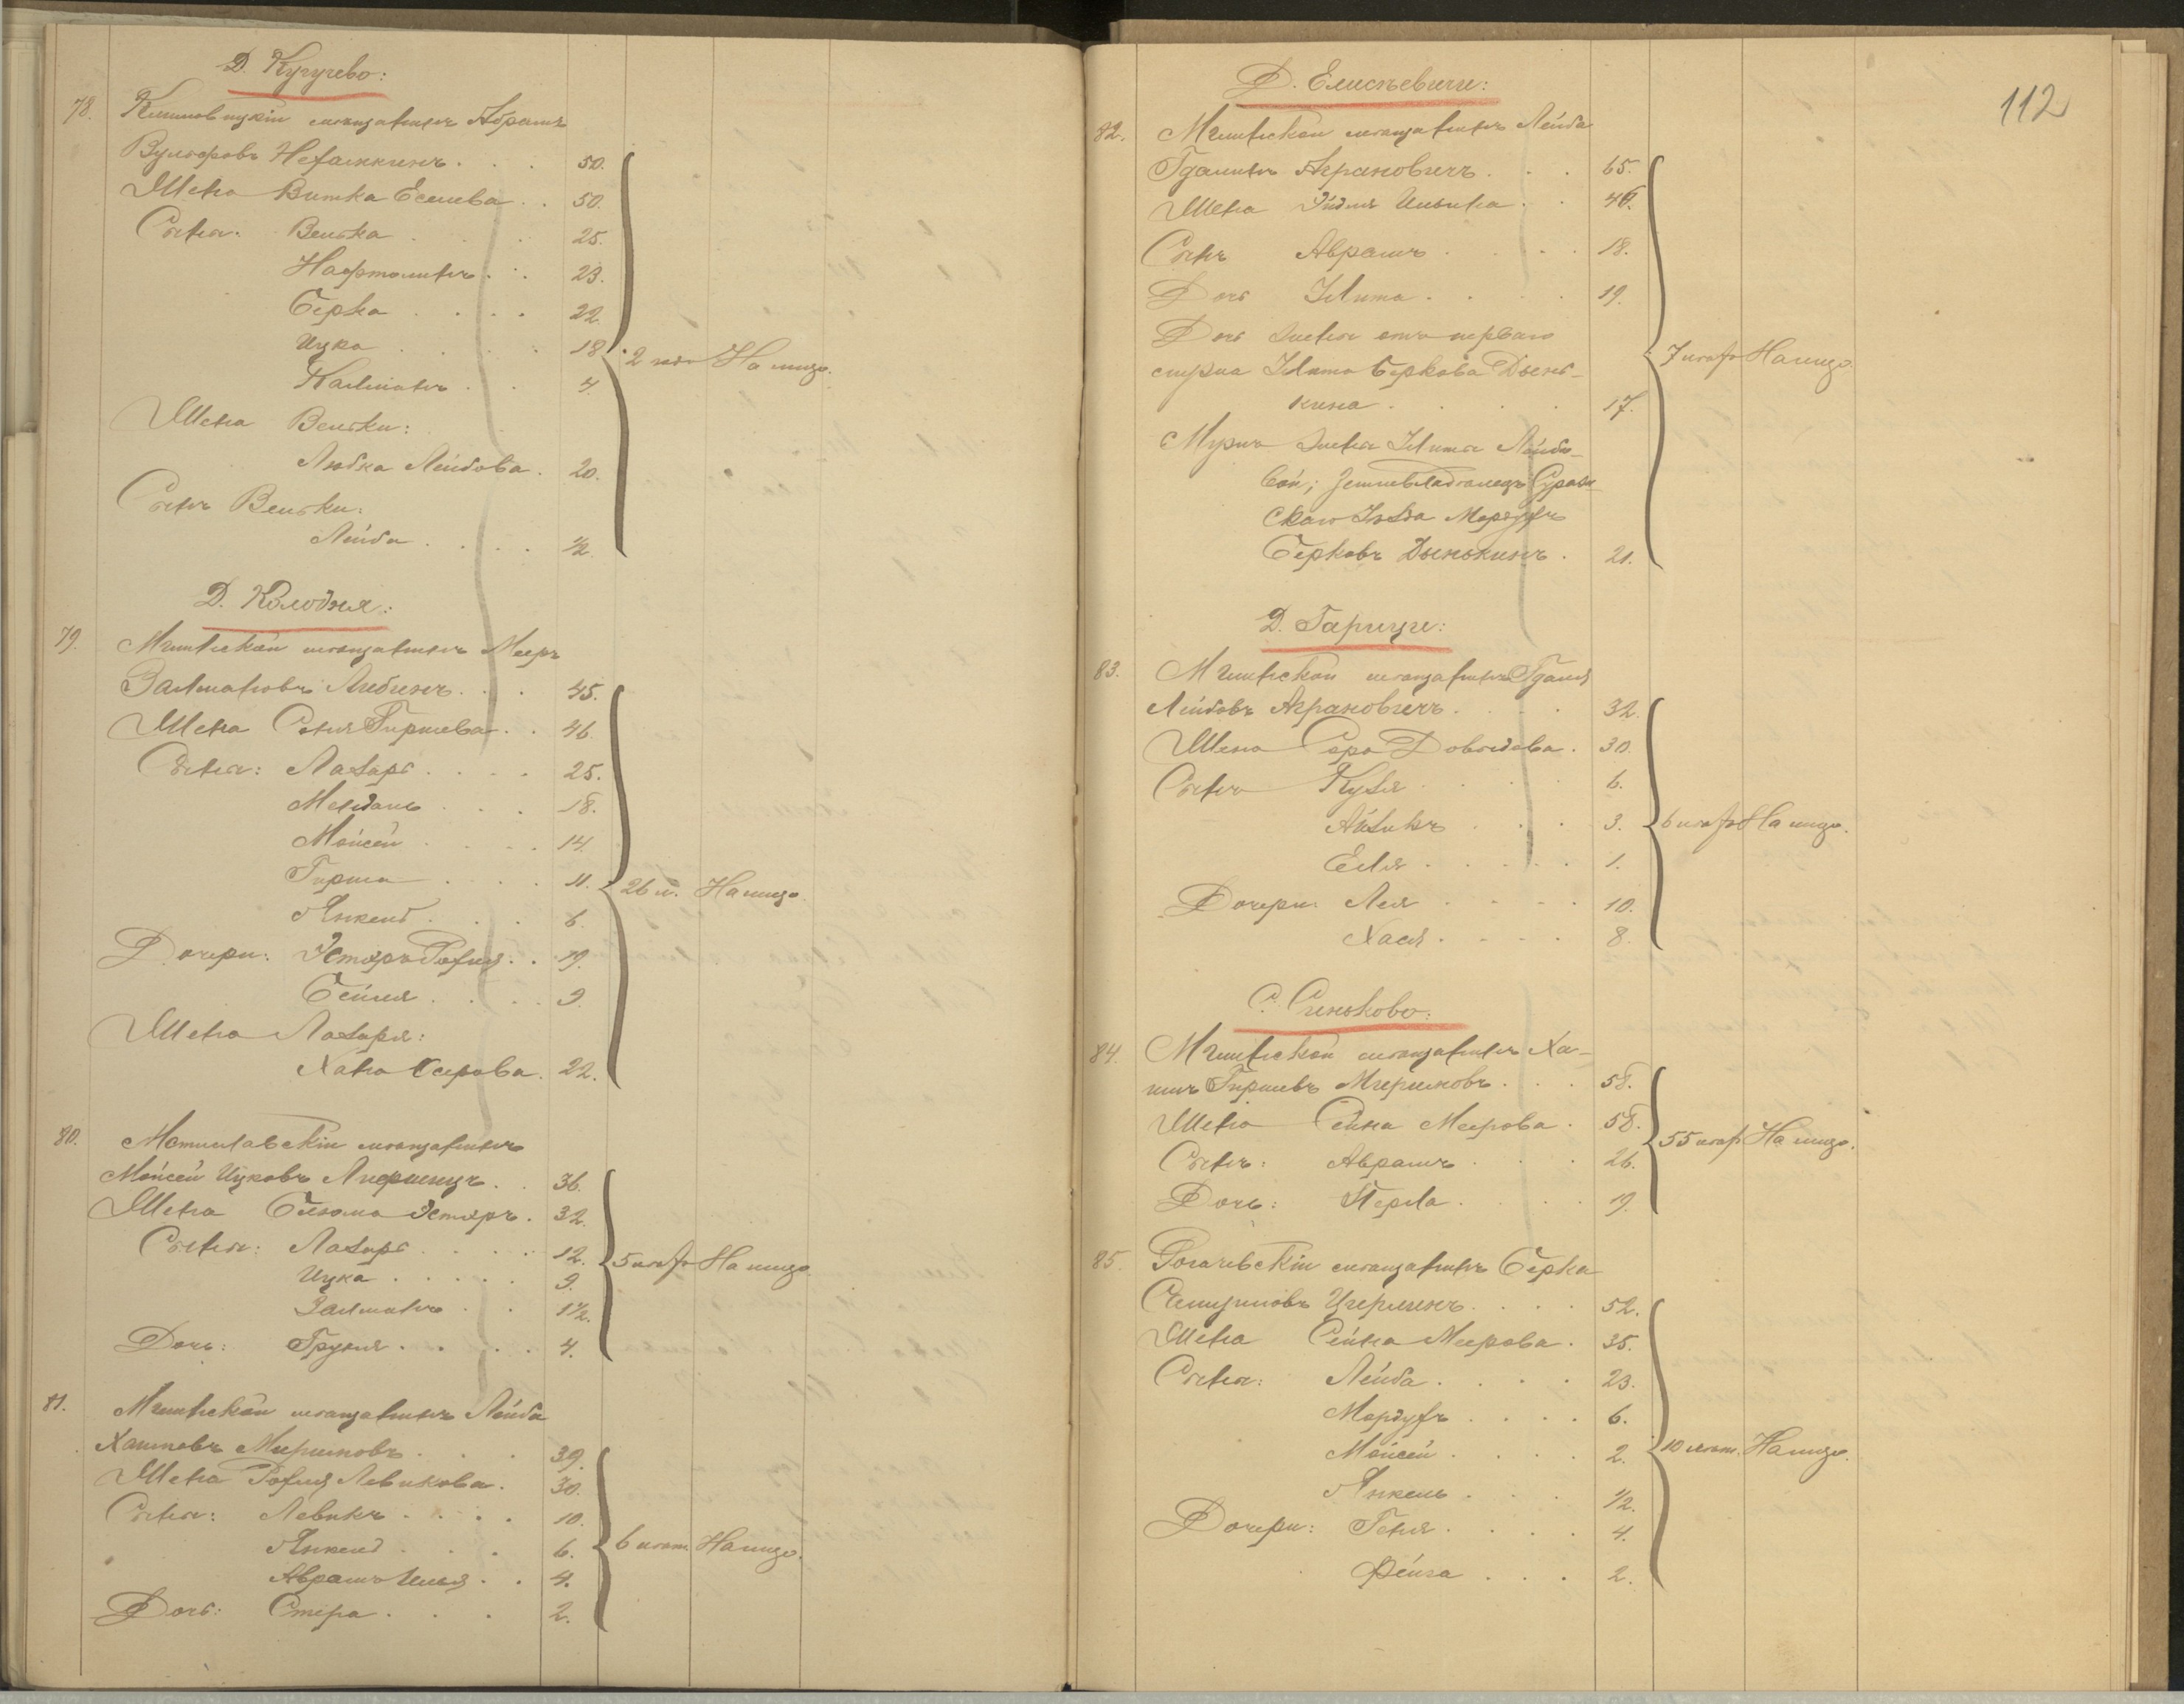 Д. Кугучево:
78. Климовицкій мѣщанинъ Абрамъ
Вульфовъ Нехамкинъ . . . 50.
Жена Витка Еселева . . 50.
Сыны: Велька . . . 25.
Нафтолинъ . . . 23.
Берка . . . . 22
Ицка . . . . 18
Калманъ . . . 4.
2 года На лицо.
Жена Вельки:
Любка Лейбова . 20.
Сынъ Вельки:
Лейба . . . . 1/2.
Д. Колодня:
79. Мглинской мѣщанинъ Мееръ
Залмановъ Либинъ . . . 45.
Жена Соня Гиршева . . 46.
Сыны: Лазарь . . . . 25.
Мендель . . . 18.
Мойсей . . . . 14.
Гирша . . . . 11.
26 л. На лицо.
Янкель . . . 6.
Дочери: Эстеръ Рохля . . 19.
Бейля . . . . 9.
Жена Лазаря:
Хана Осерова . 22.
80. Мстиславскій мѣщанинъ
Мойсей Ицковъ . . 36.
Жена Блюма Эстеръ . 32.
Сыны: Лазарь . . . . 12.
Ицка . . . . . 9.
Залманъ . . 1 1/2.
5 лѣтъ На лицо.
Дочь: Груня . . . . . 4.
81. Мглинской мѣщанинъ Лейба
Хаимовъ Миримовъ . . . 39.
Жена Рохля Левикова . 30.
Сыны: Левикъ . . . . 10.
Янкель . . . 6.
6 лѣт. На лицо.
Аврамъ Илья . . 4.
Дочь: Стера . . . 2.
112
Д. Елисѣевичи:
82. Мглинской мѣщанинъ Лейба
Гдалинъ Аграновичъ . . . 65.
Жена Эйдля Ильина . . 46.
Сынъ Аврамъ . . . . 18.
Дочь Злата . . . . 19.
Дочь жены отъ перваго
супруга Злата Беркова Дынь-
кина . . . . 17.
7 лѣтъ На лицо.
Мужъ жены Златы Лейбо-
вой; землевладѣлецъ Сураж-
скаго Уѣзда Мордухъ
Берковъ Дынькинъ . 21.
Д. Гарцуги:
83. Мглинской мѣщанинъ Гдаля
Лейбовъ Аграновичъ . . . . 32.
Жена Сора Довыдова . 30.
Сыны Кузя . . . . 6.
Айзикъ . . . 3.
6 лѣтъ На лицо.
Еля . . . . . 1.
Дочери: Лея . . . . 10.
Хася . . . . 8.
С. Синьково:
84. Мглинской мѣщанинъ Ха-
имъ Гиршевъ Миримовъ . . . 58.
Жена Сейна Меерова . 58.
Сынъ: Аврамъ . . . 26.
55 лѣтъ На лицо.
Дочь: Перла . . . . 19.
85. Рогачевскій мѣщанинъ Берка
Семуиловъ . . . . 52.
Жена Сейна Меерова . 35.
Сыны: Лейба . . . . 23.
Мордухъ . . . . 6.
Мойсей . . . . 2.
10 лѣт. На лицо.
Янкель . . . 1/2.
Дочери: Геня . . . . 4.
Фейга . . . 2.